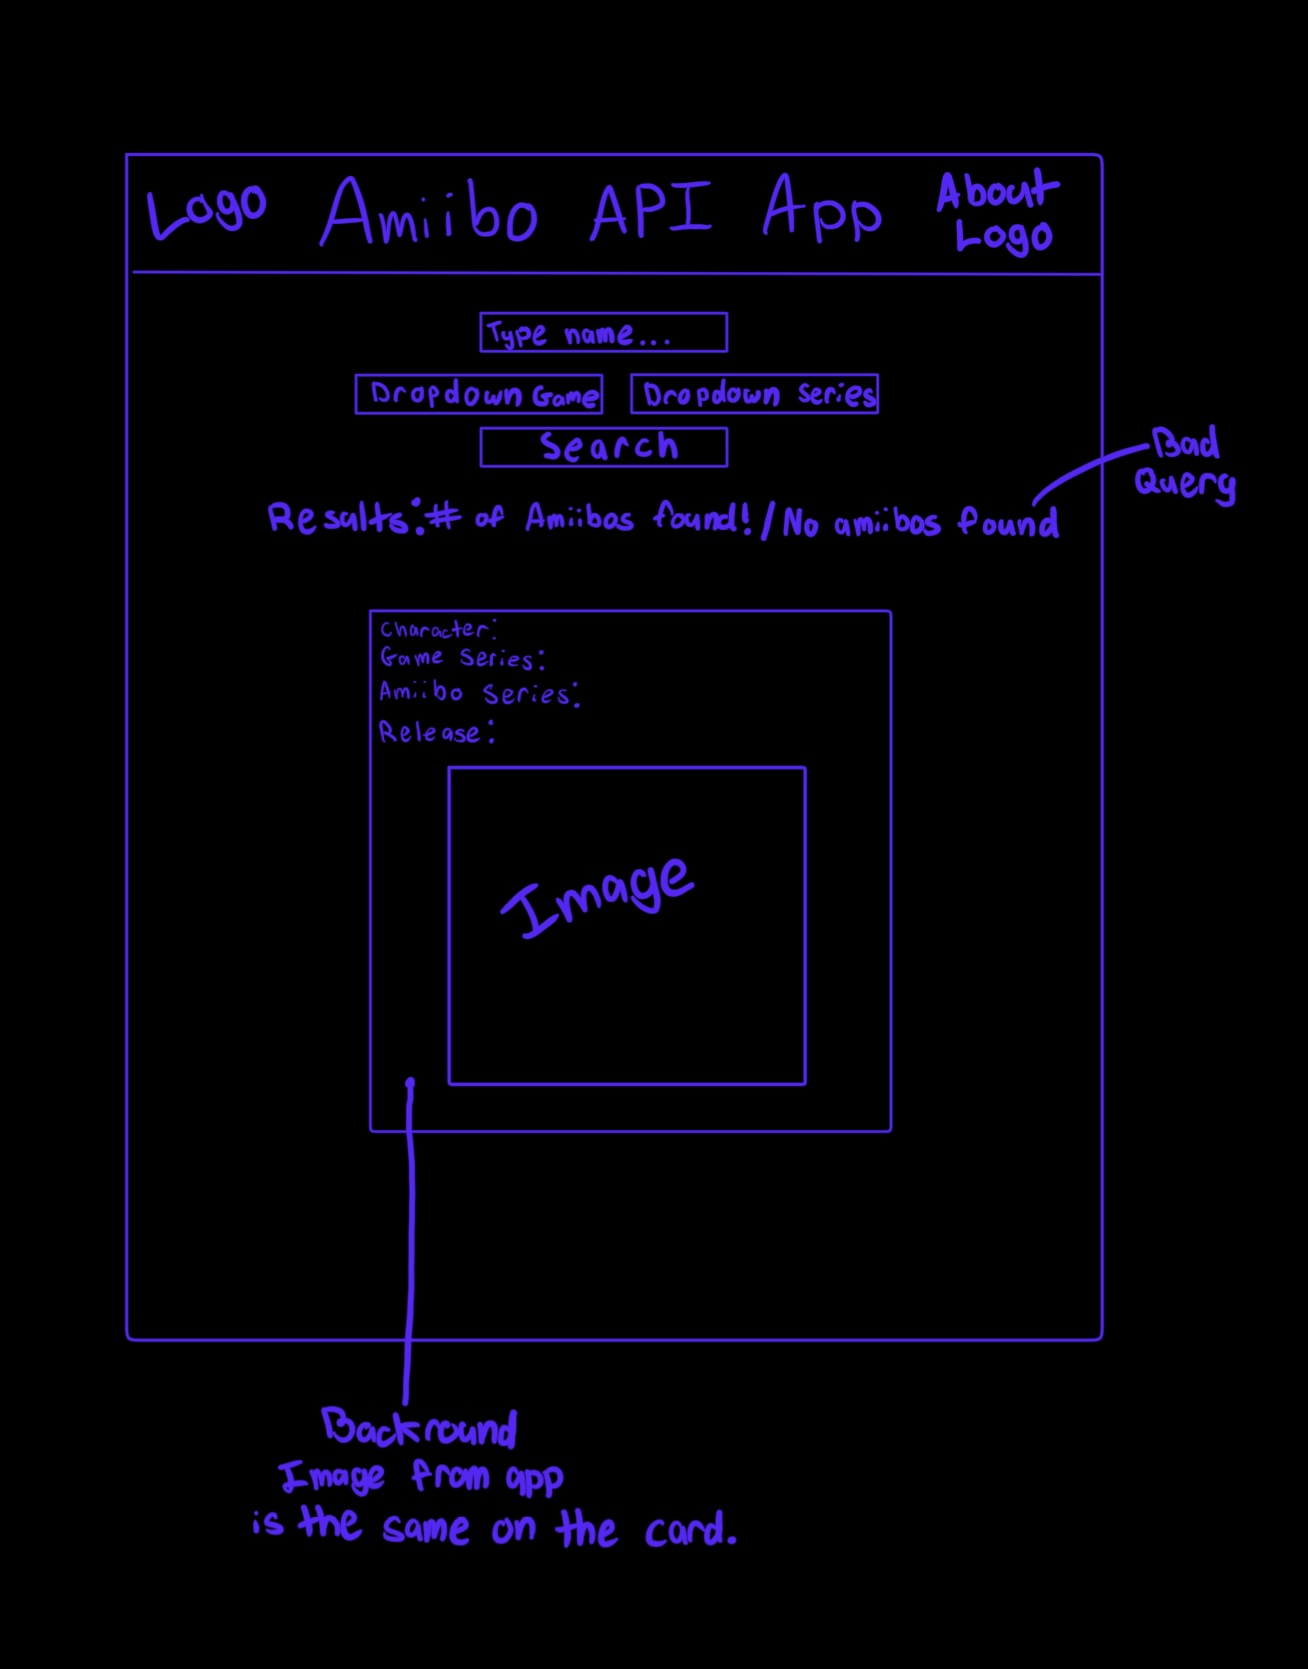 Logo Amiibo API App About Logo
Type name...
Dropdown Game Dropdown Series
Search
Results: # of Amiibos found! / No amiibos found
Bad
Query
Character:
Game Series:
Amiibo Series:
Release:
Image
Backround
Image from app
is the same on the card.